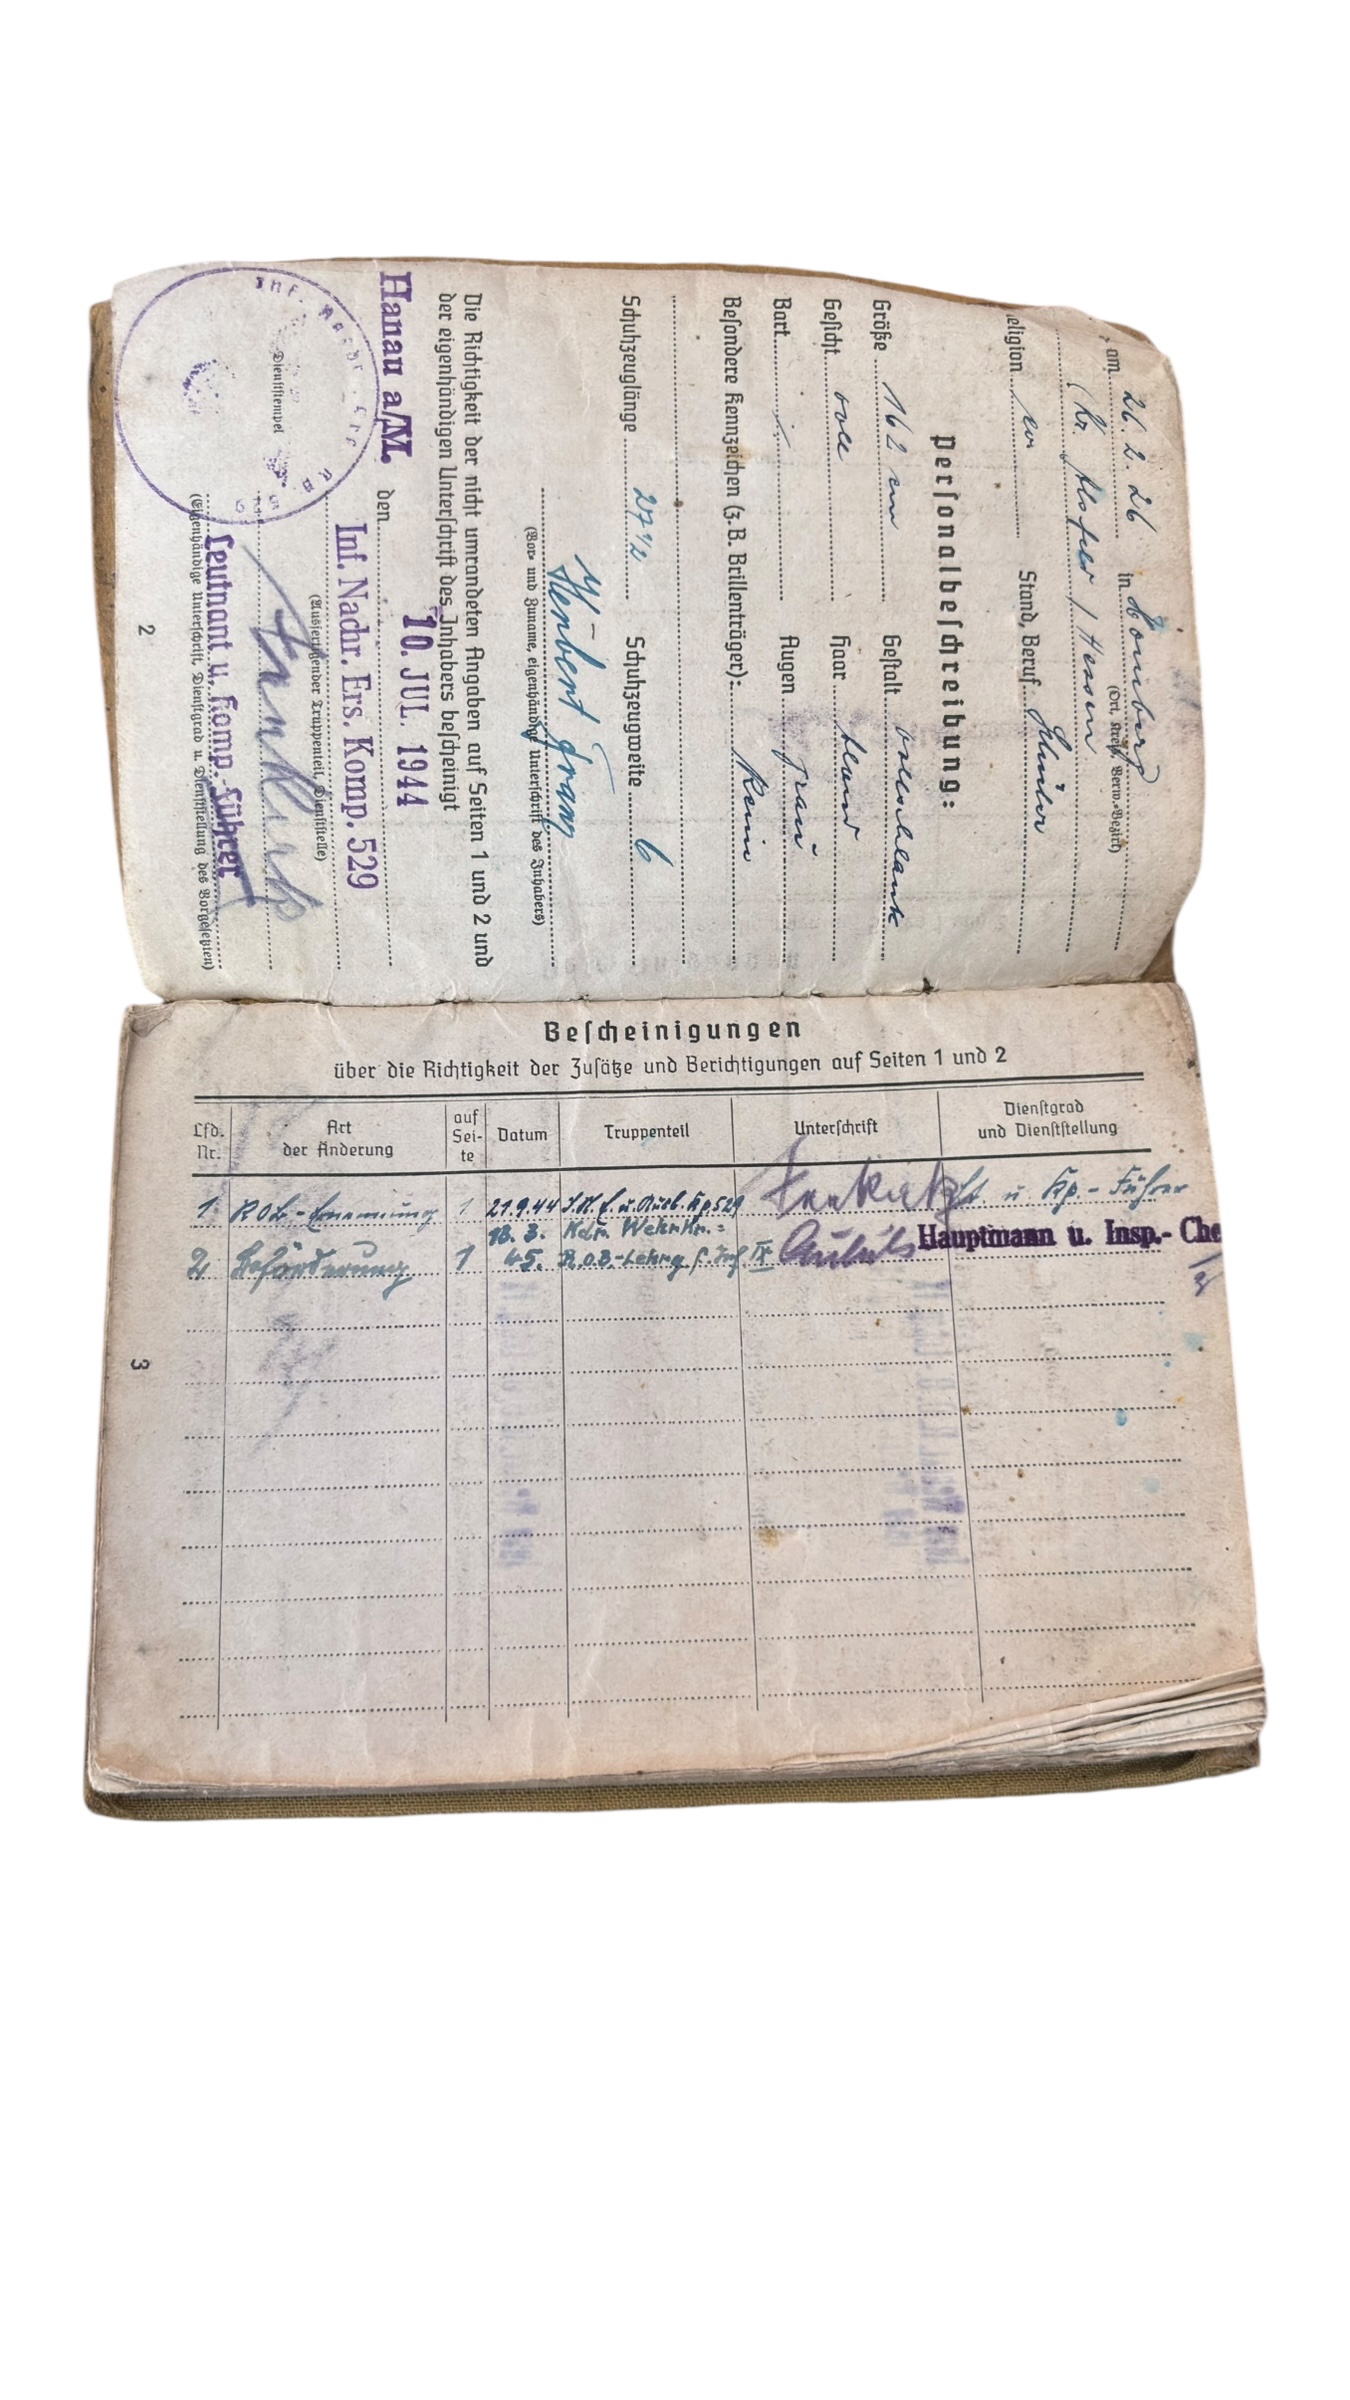 am 26.2.26 in Homburg
(Ort, Kreis, Verw.-Bezirk)
(Kr. Alsfeld / Hessen
eligion ev Stand, Beruf Schüler
Personalbeschreibung:
Größe 162 cm Gestalt vollschlank
Gesicht voll Haar blond
Bart ./. Augen grau
Besondere Kennzeichen (z.B. Brillenträger): Keine
Schuhzeuglänge 27 1/2 Schuhzeugweite 6
Herbert Franz
(Vor- und Zuname, eigenhändige Unterschrift des Inhabers)
Die Richtigkeit der nicht umrandeten Angaben auf Seiten 1 und 2 und
der eigenhändigen Unterschrift des Inhabers bescheinigt
Hanau a/M. den 10. JUL. 1944
Inf. Nachr. Ers. Komp. 529
(Ausfertigender Truppenteil, Dienststelle)
Dienststempel
Leutnant u. Komp.-Führer
(Eigenhändige Unterschrift, Dienstgrad u. Dienststellung des Vorgesetzten)
2
Bescheinigungen
über die Richtigkeit der Zusätze und Berichtigungen auf Seiten 1 und 2
Lfd. Nr. Art der Änderung auf Sei- te Datum Truppenteil Unterschrift Dienstgrad und Dienststellung
1 ROB-Ernennung 1 21.9.44 J.N.E.u.Ausb.Kp 529 Lt. u Kp.-Führer
2 Beförderung 1 18.3.45. Kdr. Wehrkr.= R.O.B.-Lehrg f. Inf IX Hauptmann u. Insp.- Che
3